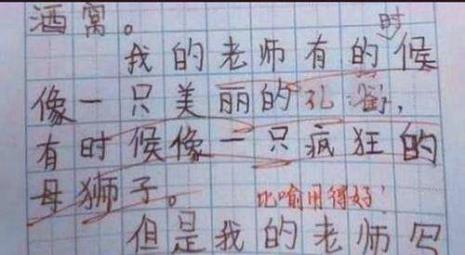 酒窝。
时
我的老师有的候
像一只美丽的孔雀，
有时候像一只疯狂的
母狮子。 比喻用得好！
但是我的老师写